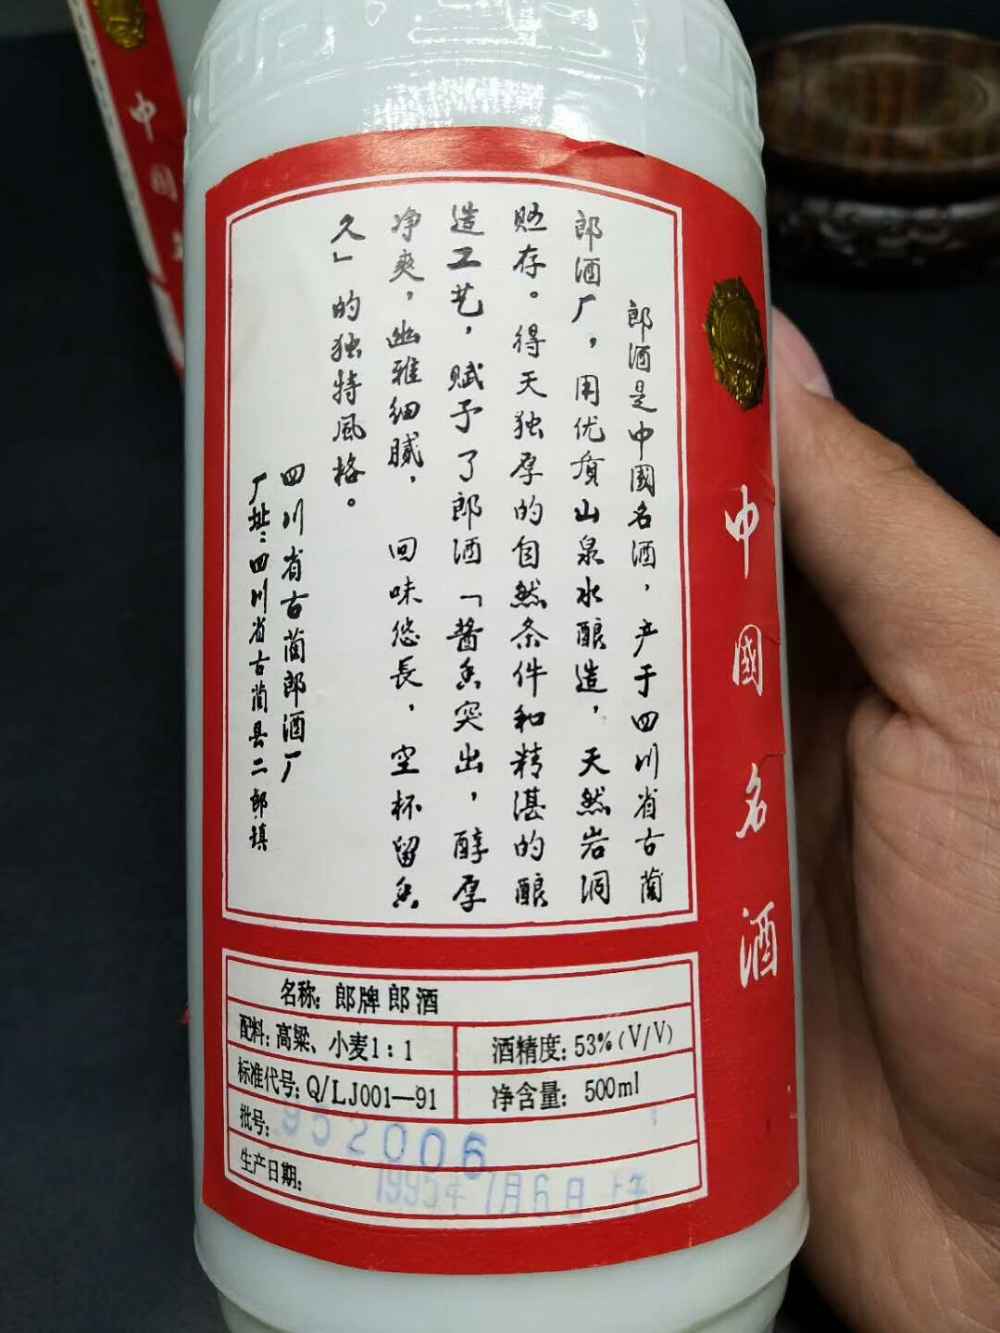 郎酒是中國名酒，产于四川省古蔺
郎酒厂，用优质山泉水酿造，天然岩洞
贮存。得天独厚的自然条件和精湛的酿
造工艺，赋予了郎酒「酱香突出，醇厚
净爽，幽雅细腻，回味悠長，空杯留香
久」的独特風格。
四川省古蔺郎酒厂
厂址：四川省古蔺县二郎镇
中國名酒
名称：郎牌郎酒
配料：高粱、小麦1：1
酒精度：53%（V/V）
标准代号：Q/LJ001—91
净含量：500ml
批号：952006
生产日期：1995年1月6日上午
中國名